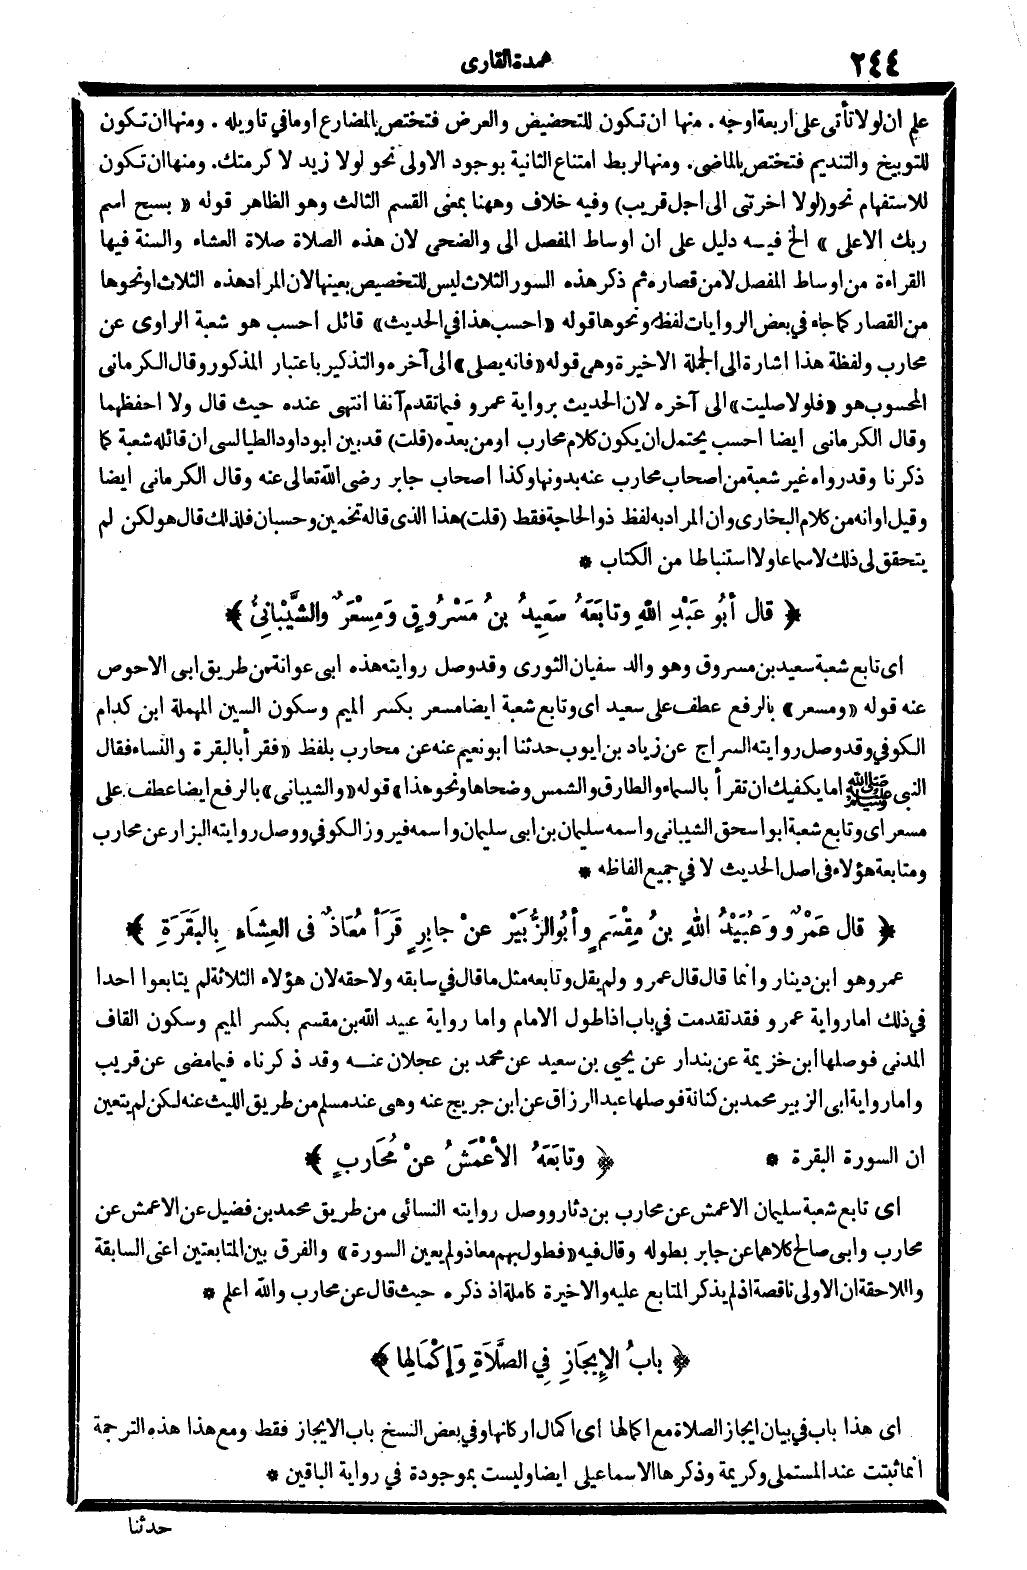 ٢٤٤
عمدة القارى
علم ان لولا تأتى على اربعة اوجه . منها ان تكون للتحضيض والعرض فتختص بالمضارع او مافي تاويله . ومنها ان تكون
للتوبيخ والتنديم فتختص بالماضى. ومنها لربط امتناع الثانية بوجود الاولى نحو لولا زيد لا كرمتك. ومنها ان تكون
للاستفهام نحو (لولا اخرتنى الى اجل قريب) وفيه خلاف وههنا بمعنى القسم الثالث وهو الظاهر قوله « بسبح اسم
ربك الاعلى » الخ فيه دليل على ان اوساط المفصل الى والضحى لان هذه الصلاة صلاة العشاء والسنة فيها
القراءة من اوساط المفصل لا من قصاره ثم ذكر هذه السور الثلاث ليس للتخصيص بعينها لان المراد هذه الثلاث او نحوها
من القصار كما جاء في بعض الروايات لفظ ونحوها قوله «احسب هذا في الحديث» قائل احسب هو شعبة الراوى عن
محارب ولفظة هذا اشارة الى الجملة الاخيرة وهى قوله «فانه يصلى» الى آخره والتذكير باعتبار المذكور وقال الكرمانى
المحسوب هو «فلولا صليت» الى آخره لان الحديث برواية عمرو فيما تقدم آنفا انتهى عنده حيث قال ولا احفظهما
وقال الكرمانى ايضا احسب يحتمل ان يكون كلام محارب او من بعده (قلت) قد بين ابو داود الطيالسى ان قائله شعبة كما
ذكرنا وقد رواه غير شعبة من اصحاب محارب عنه بدونها وكذا اصحاب جابر رضى الله تعالى عنه وقال الكرمانى ايضا
وقيل اوانه من كلام البخارى وان المراد به لفظ ذو الحاجة فقط (قلت) هذا الذى قاله تخمين وحسبان فلذلك قال هو لكن لم
يتحقق لى ذلك لا سماعا ولا استنباطا من الكتاب *
﴿ قال أبُو عَبْدِ اللهِ وتابَعَهُ سَعِيدُ بنُ مَسْرُوقٍ وَمِسْعَرٌ والشَّيْبَانِيُّ ﴾
اى تابع شعبة سعيد بن مسروق وهو والد سفيان الثورى وقد وصل روايته هذه ابى عوانة من طريق ابى الاحوص
عنه قوله «ومسعر» بالرفع عطف على سعيد اى وتابع شعبة ايضا مسعر بكسر الميم وسكون السين المهملة ابن كدام
الكوفي وقد وصل روايته السراج عن زياد بن ايوب حدثنا ابو نعيم عنه عن محارب بلفظ «فقرأ بالبقرة والنساء فقال
النبى ﷺ اما يكفيك ان تقرأ بالسماء والطارق والشمس وضحاها ونحو هذا» قوله «والشيبانى» بالرفع ايضا عطف على
مسعر اى وتابع شعبة ابو اسحق الشيبانى واسمه سليمان بن ابى سليمان واسمه فيروز الكوفي ووصل روايته البزار عن محارب
ومتابعة هؤلاء فى اصل الحديث لا في جميع الفاظه *
﴿ قال عَمْرٌو وَعُبَيْدُ اللهِ بنُ مِقْسَمٍ وأبُو الزُّبَيْرِ عنْ جابِرٍ قَرَأَ مُعَاذٌ فى العِشَاءِ بِالبَقَرَةِ ﴾
عمرو هو ابن دينار وانما قال قال عمرو ولم يقل وتابعه مثل ما قال في سابقه ولاحقه لان هؤلاء الثلاثة لم يتابعوا احدا
في ذلك اما رواية عمرو فقد تقدمت في باب اذا طول الامام واما رواية عبيد الله بن مقسم بكسر الميم وسكون القاف
المدنى فوصلها ابن خزيمة عن بندار عن يحيى بن سعيد عن محمد بن عجلان عنه وقد ذكرناه فيما مضى عن قريب
واما رواية ابى الزبير محمد بن كنانة فوصلها عبد الرزاق عن ابن جريج عنه وهى عند مسلم من طريق الليث عنه لكن لم يتعين
ان السورة البقرة * ﴿ وتابَعَهُ الأعْمَشُ عنْ مُحَاربٍ ﴾
اى تابع شعبة سليمان الاعمش عن محارب بن دثار ووصل روايته النسائى من طريق محمد بن فضيل عن الاعمش عن
محارب وابى صالح كلاهما عن جابر بطوله وقال فيه «فطول بهم معاذ ولم يعين السورة» والفرق بين المتابعتين اعنى السابقة
واللاحقة ان الاولى ناقصة اذ لم يذكر المتابع عليه والاخيرة كاملة اذ ذكره حيث قال عن محارب والله اعلم *
﴿ بابُ الإيجَازِ فِي الصَّلَاةِ وَإِكْمَالِها ﴾
اى هذا باب في بيان ايجاز الصلاة مع اكمالها اى اكمال اركانها وفي بعض النسخ باب الايجاز فقط ومع هذا هذه الترجمة
انما ثبتت عند المستملى وكريمة وذكرها الاسماعيلى ايضا وليست بموجودة في رواية الباقين *
حدثنا